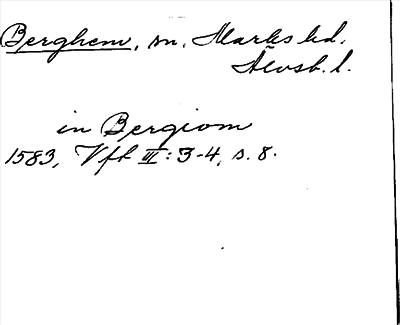 Berghem, sn, Marks hd,
Älvsb. l.
in Bergiom
1583, Vft III: 3-4, s. 8.